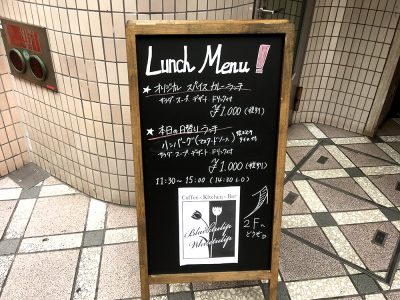 Lunch Menu!
★ オリジナル スパイス カレーランチ
サラダ スープ デザート ドリンク付
¥1.000 (税別)
★ 本日の日替りランチ
ハンバーグ(マスタードソース)
サラダ スープ デザート ドリンク付
¥1.000 (税別)
11:30〜15:00 (14:30 LO)
Coffee・Kitchen・Bar
Blue tulip
White tulip
2Fへ
どうぞ